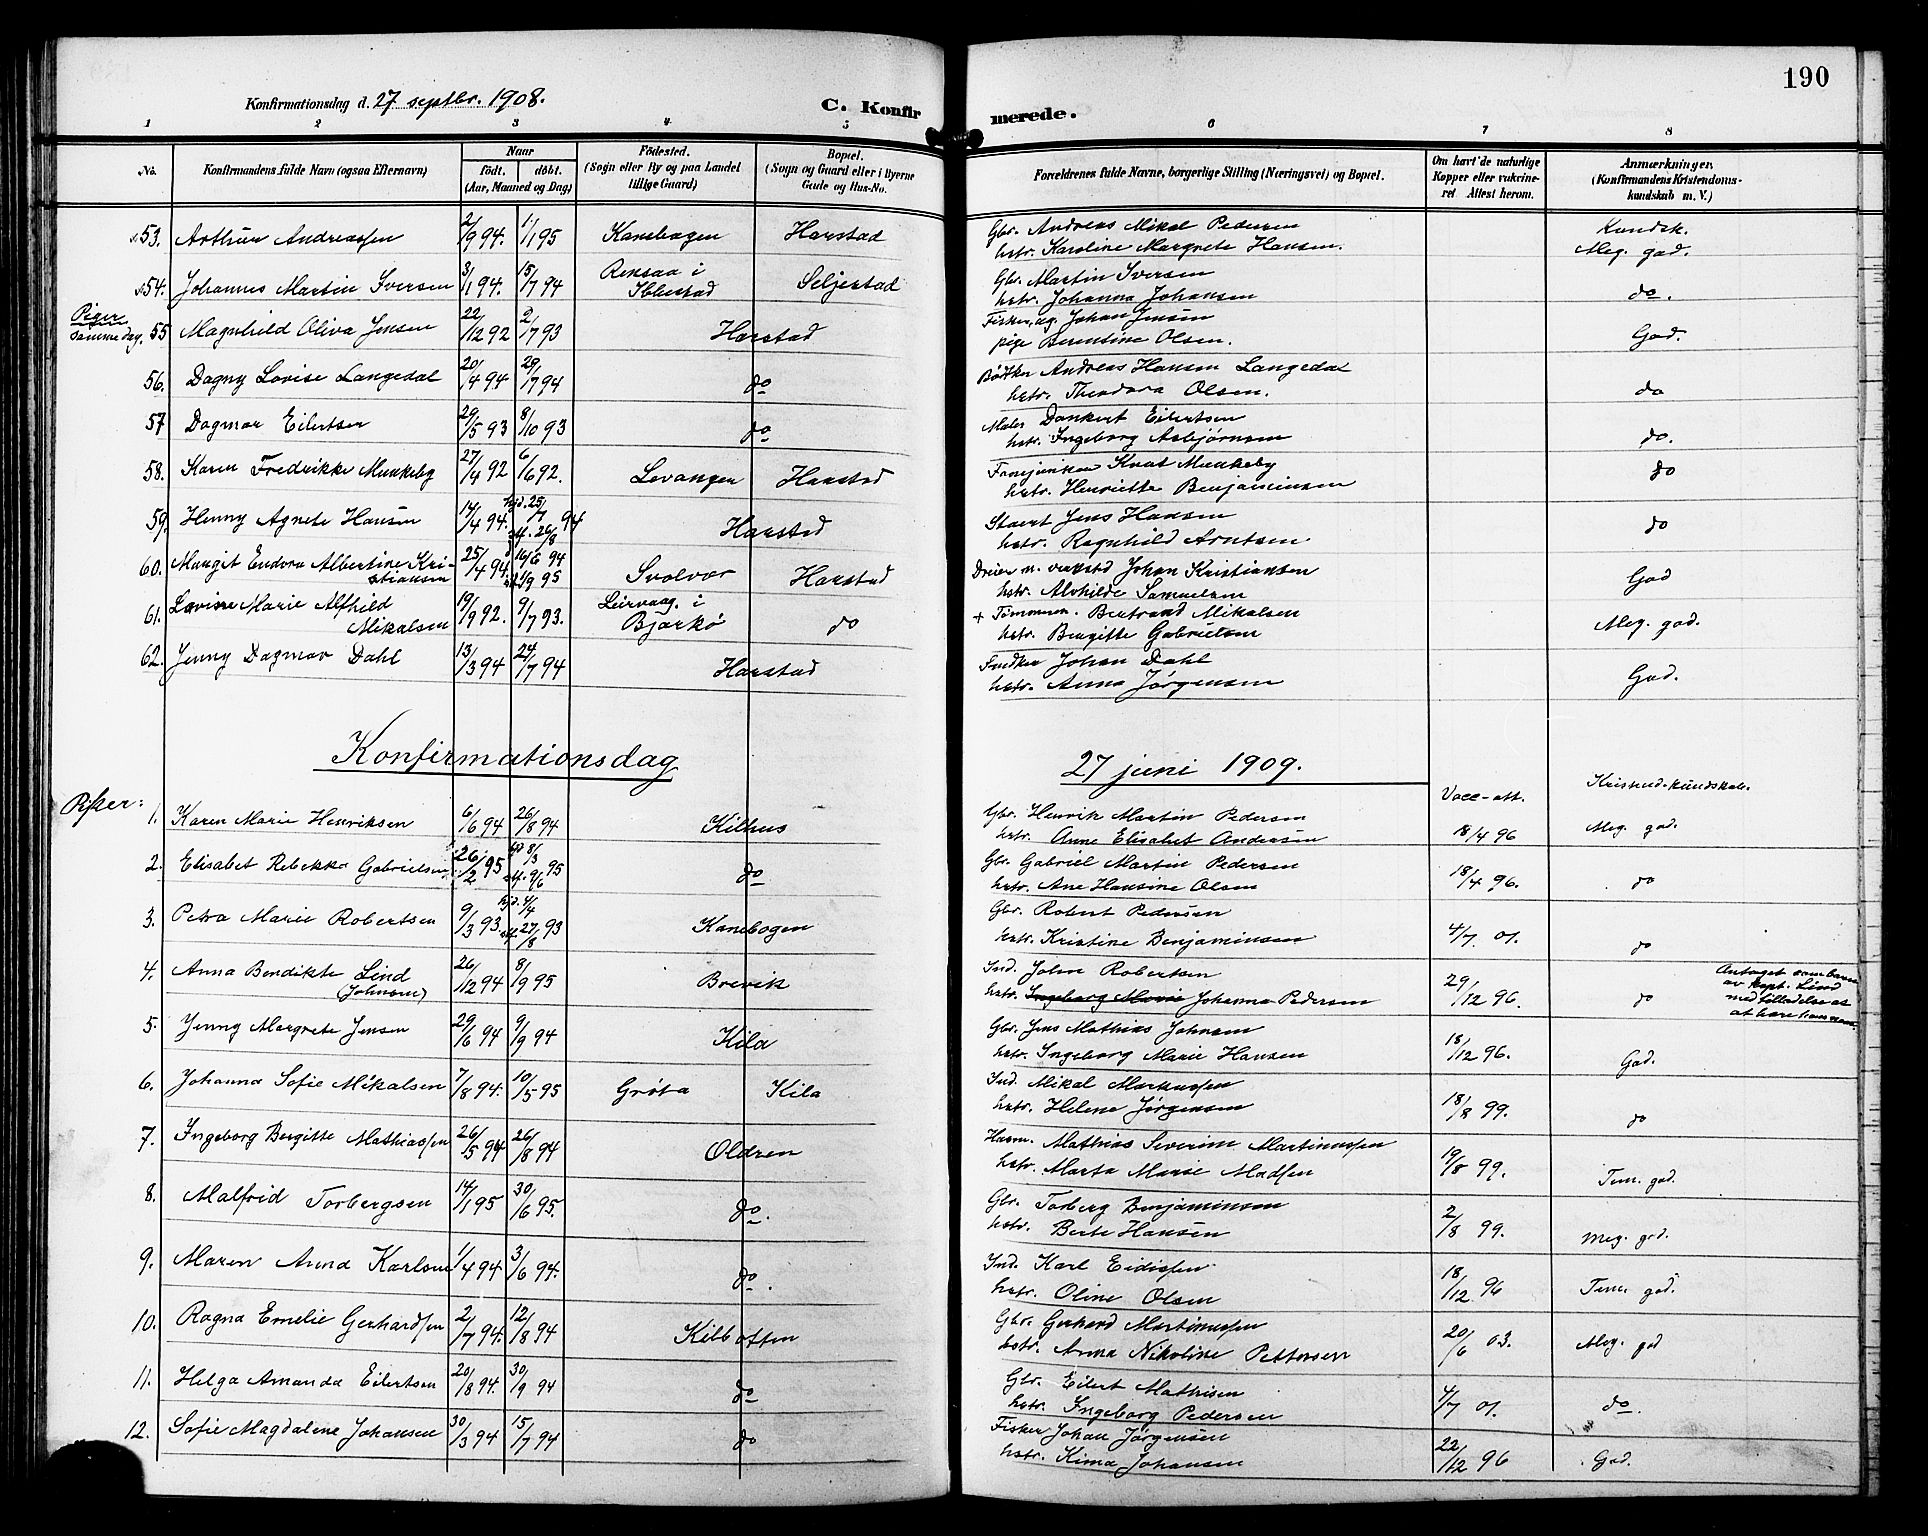 190
Konfirmationsdag d. 27 septbr. 1908.
C. Konfir
merede.
1 2 3 4 5 6 7 8
No.
Konfirmandens fulde Navn (ogsaa Efternavn)
Naar
födt. döbt.
(Aar, Maaned og Dag)
Födested.
(Sogn eller By og paa Landet
tillige Gaard)
Bopæl.
(Sogn og Gaard eller i Byerne
Gade og Hus-No.
Forældrenes fulde Navne, borgerlige Stilling (Næringsvei) og Bopæl.
Om havt de naturlige
Kopper eller vakcine-
ret Attest herom.
Anmærkninger
(Konfirmandens Kristendoms-
kundskab m. V.)
53. Arthur Andreassen 2/9 94. 1/1 95 Kanebogen Harstad Gbr. Andreas Mikal Pedersen Kundsk.
hstr. Karoline Margrete Hansen. Meg. god.
54. Johannes Martin Iversen 3/1 94. 15/7 94 Rensaa i Ibbestad Seljestad Gbr. Martin Iversen
hstr. Johanna Johansen do.
Piger samme dag.
55 Magnhild Oliva Jensen 22/12 92 2/7 93 Harstad Fisker, ug. Johan Jensen
pige Berentine Olsen. God.
56. Dagny Lovise Langedal 20/4 94 29/7 94 do Bødker Andreas Hansen Langedal
hstr. Theodora Olsen. do
57 Dagmar Eilertsen 29/5 93 8/10 93 do Maler Dankert Eilertsen
hstr. Ingeborg Asbjørnsen do.
58. Karen Fredrikke Munkeby 27/4 92 6/6 92. Levangen Harstad Fanejunker Knut Munkeby
hstr. Henriette Benjaminsen do
59. Henny Agnete Hansen 14/4 94. hjd. 25/7 st. 26/8 94 Harstad Stuert Jens Hansen
hstr. Ragnhild Arntsen do
60. Margit Eudora Albertine Kri-
stiansen 25/4 94. 16/6 94 st. 1/9 95 Svolvær Harstad Dreier m. verksted Johan Kristiansen
hstr. Alvhilde Samuelsen God
61. Lovise Marie Alfhild
Mikalsen 19/9 92. 9/7 93. Leirvaag. i Bjarkö do + Tømmerm. Bertrand Mikalsen
hstr. Bergitte Gabrielsen Meg. god.
62. Jenny Dagmar Dahl 13/3 94 24/7 94 Harstad Snedker Johan Dahl
hstr. Anna Jørgensen God.
Konfirmationsdag 27 juni 1909.
Piker: Vacc-att. Kristend-kundskab.
1. Karen Marie Henriksen 6/6 94 26/8 94 Kilhus Gbr. Henrik Martin Pedersen
hstr. Anne Elisabet Andersen 18/4 96 Meg. god.
2. Elisabet Rebekka Gabrielsen 26/2 95 hjd 8/3 st. 9/6 95 do Gbr. Gabriel Martin Pedersen
hstr. Ane Hansine Olsen 18/4 96. do
3. Petra Marie Robertsen 9/3 93. hjd. 4/4 st. 27/8 93 Kanebogen Gbr. Robert Pedersen
hstr. Kristine Benjaminsen 4/7 01. do
4. Anna Bendikte Lind
(Johnsen) 26/12 94 8/9 95 Brevik Ind. John Robertsen
hstr. Ingeborg Marie Johanna Pedersen 29/12 96. do
Antaget som barn
av kapt. Lind
med tilladelse at
at bære hans navn.
5. Jenny Margrete Jensen 29/6 94 9/9 94 Kila Gbr. Jens Mathias Johnsen
hstr. Ingeborg Marie Hansen 18/12 96. God.
6. Johanna Sofie Mikalsen 7/8 94. 10/5 95 Gröta Kila Ind. Mikal Markussen
hstr. Helene Jørgensen 18/8 99. do
7. Ingeborg Bergitte Mathiassen 26/5 94 26/8 94 Oldren Husm. Mathias Severin Martinussen
hstr. Marta Marie Madsen 19/8 99. Tem. god.
8. Malfrid Torbergsen 14/1 95 30/6 95. do. Gbr. Torberg Benjaminsen
hstr. Berte Hansen 2/8 99. Meg. god.
9. Maren Anna Karlsen 1/4 94 3/6 94. do. Ind. Karl Eidissen
hstr. Oline Olsen 18/12 96 Tem. god.
10. Ragna Emelie Gerhardsen 2/7 94. 12/8 94 Kilbotten Gbr. Gerhard Martinussen
hstr. Anna Nikoline Pettersen 20/6 03. Meg. god
11. Helga Amanda Eilertsen 20/8 94. 30/9 94 do Gbr. Eilert Mathisen
hstr. Ingeborg Pedersen 4/7 01. do.
12. Sofie Magdalene Johansen 30/3 94 15/7 94 do Fisker Johan Jørgensen
hstr. Kima Johansen 22/12 96 God.